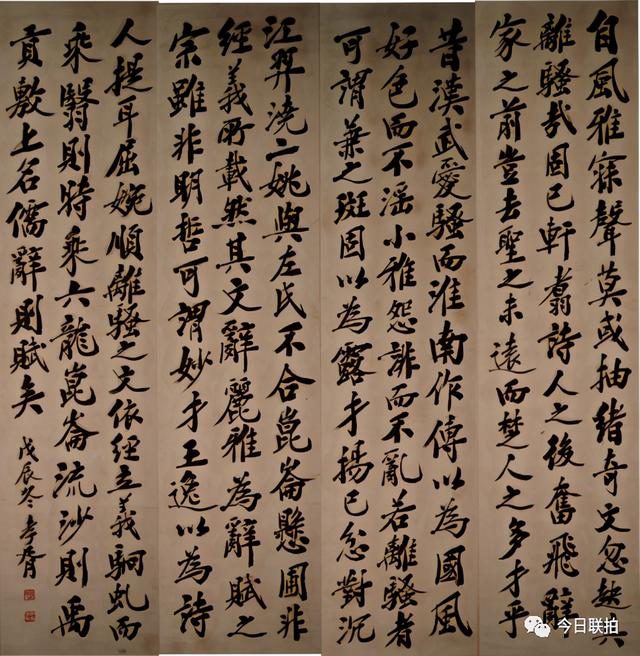 自風雅寐聲莫或抽緒奇文忽起其
離騷哉固已軒翥詩人之後奮飛辭
家之前豈去聖之未遠而楚人之多才乎
昔漢武愛騷而淮南作傳以為國風
好色而不淫小雅怨誹而不亂若離騷者
可謂兼之班固以為露才揚己忿對沉
江羿澆二姚與左氏不合崑崙懸圃非
經義所載然其文辭麗雅為辭賦之
宗雖非明哲可謂妙才王逸以為詩
人提耳屈婉順離騷之文依經立義駟虬而
乘翳則時乘六龍崑崙流沙則禹
貢敷土名儒辭則賦矣
戊辰冬孝胥
今日联拍